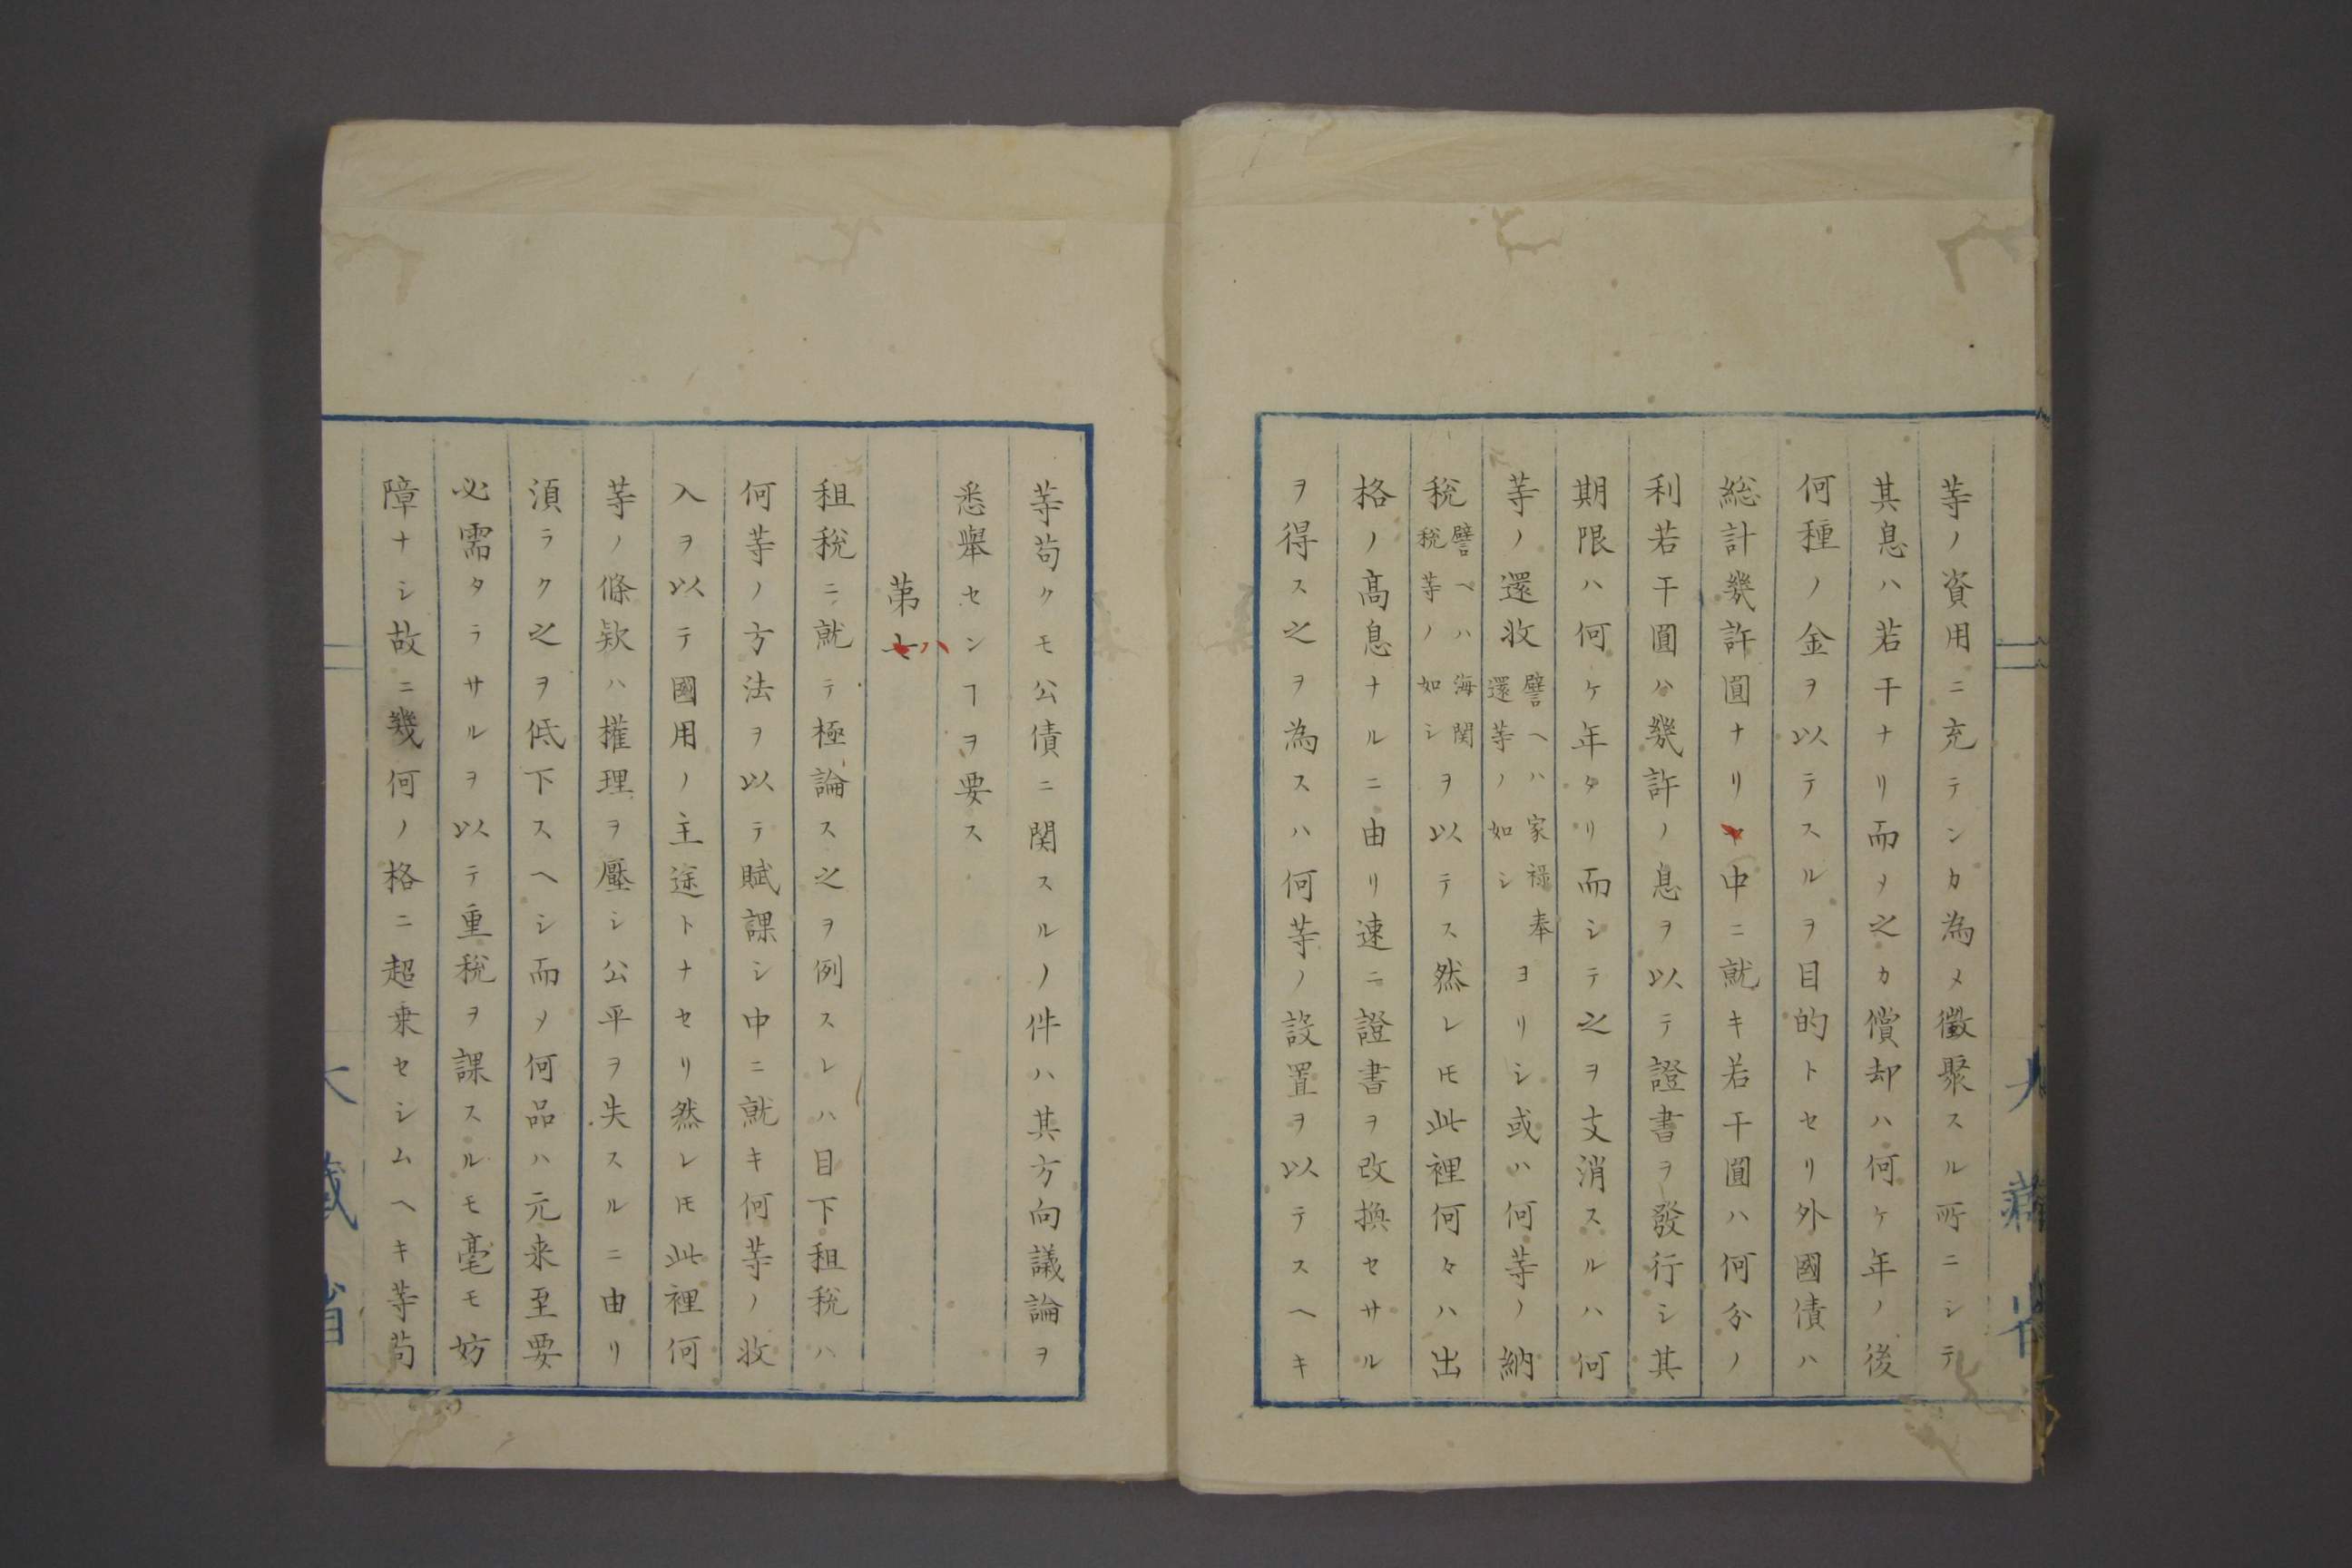 等ノ資用ニ充テンカ為メ徴聚スル所ニシテ
其息ハ若干ナリ而メ之カ償却ハ何ケ年ノ後
何種ノ金ヲ以テスルヲ目的トセリ外國債ハ
総計幾許圓ナリ中ニ就キ若干圓ハ何分ノ
利若干圓ハ幾許ノ息ヲ以テ證書ヲ發行シ其
期限ハ何ケ年タリ而シテ之ヲ支消スルハ何
等ノ還收譬ヘハ家禄奉還等ノ如シヨリシ或ハ何等ノ納
税譬ヘハ海関税等ノ如シヲ以テス然レ𪜈此裡何々ハ出
格ノ髙息ナルニ由リ速ニ證書ヲ改換セサル
ヲ得ス之ヲ為スハ何等ノ設置ヲ以テスヘキ
等苟クモ公債ニ関スルノ件ハ其方向議論ヲ
悉舉センヿヲ要ス
苐七八
租税ニ就テ極論ス之ヲ例スレハ目下租税ハ
何等ノ方法ヲ以テ賦課シ中ニ就キ何等ノ收
入ヲ以テ國用ノ主途トナセリ然レ𪜈此裡何
等ノ條欵ハ權理ヲ壓シ公平ヲ失スルニ由リ
須ラク之ヲ低下スヘシ而メ何品ハ元来至要
必需タラサルヲ以テ重税ヲ課スルモ毫モ妨
障ナシ故ニ幾何ノ格ニ超乗セシムヘキ等苟
大藏省
大藏省